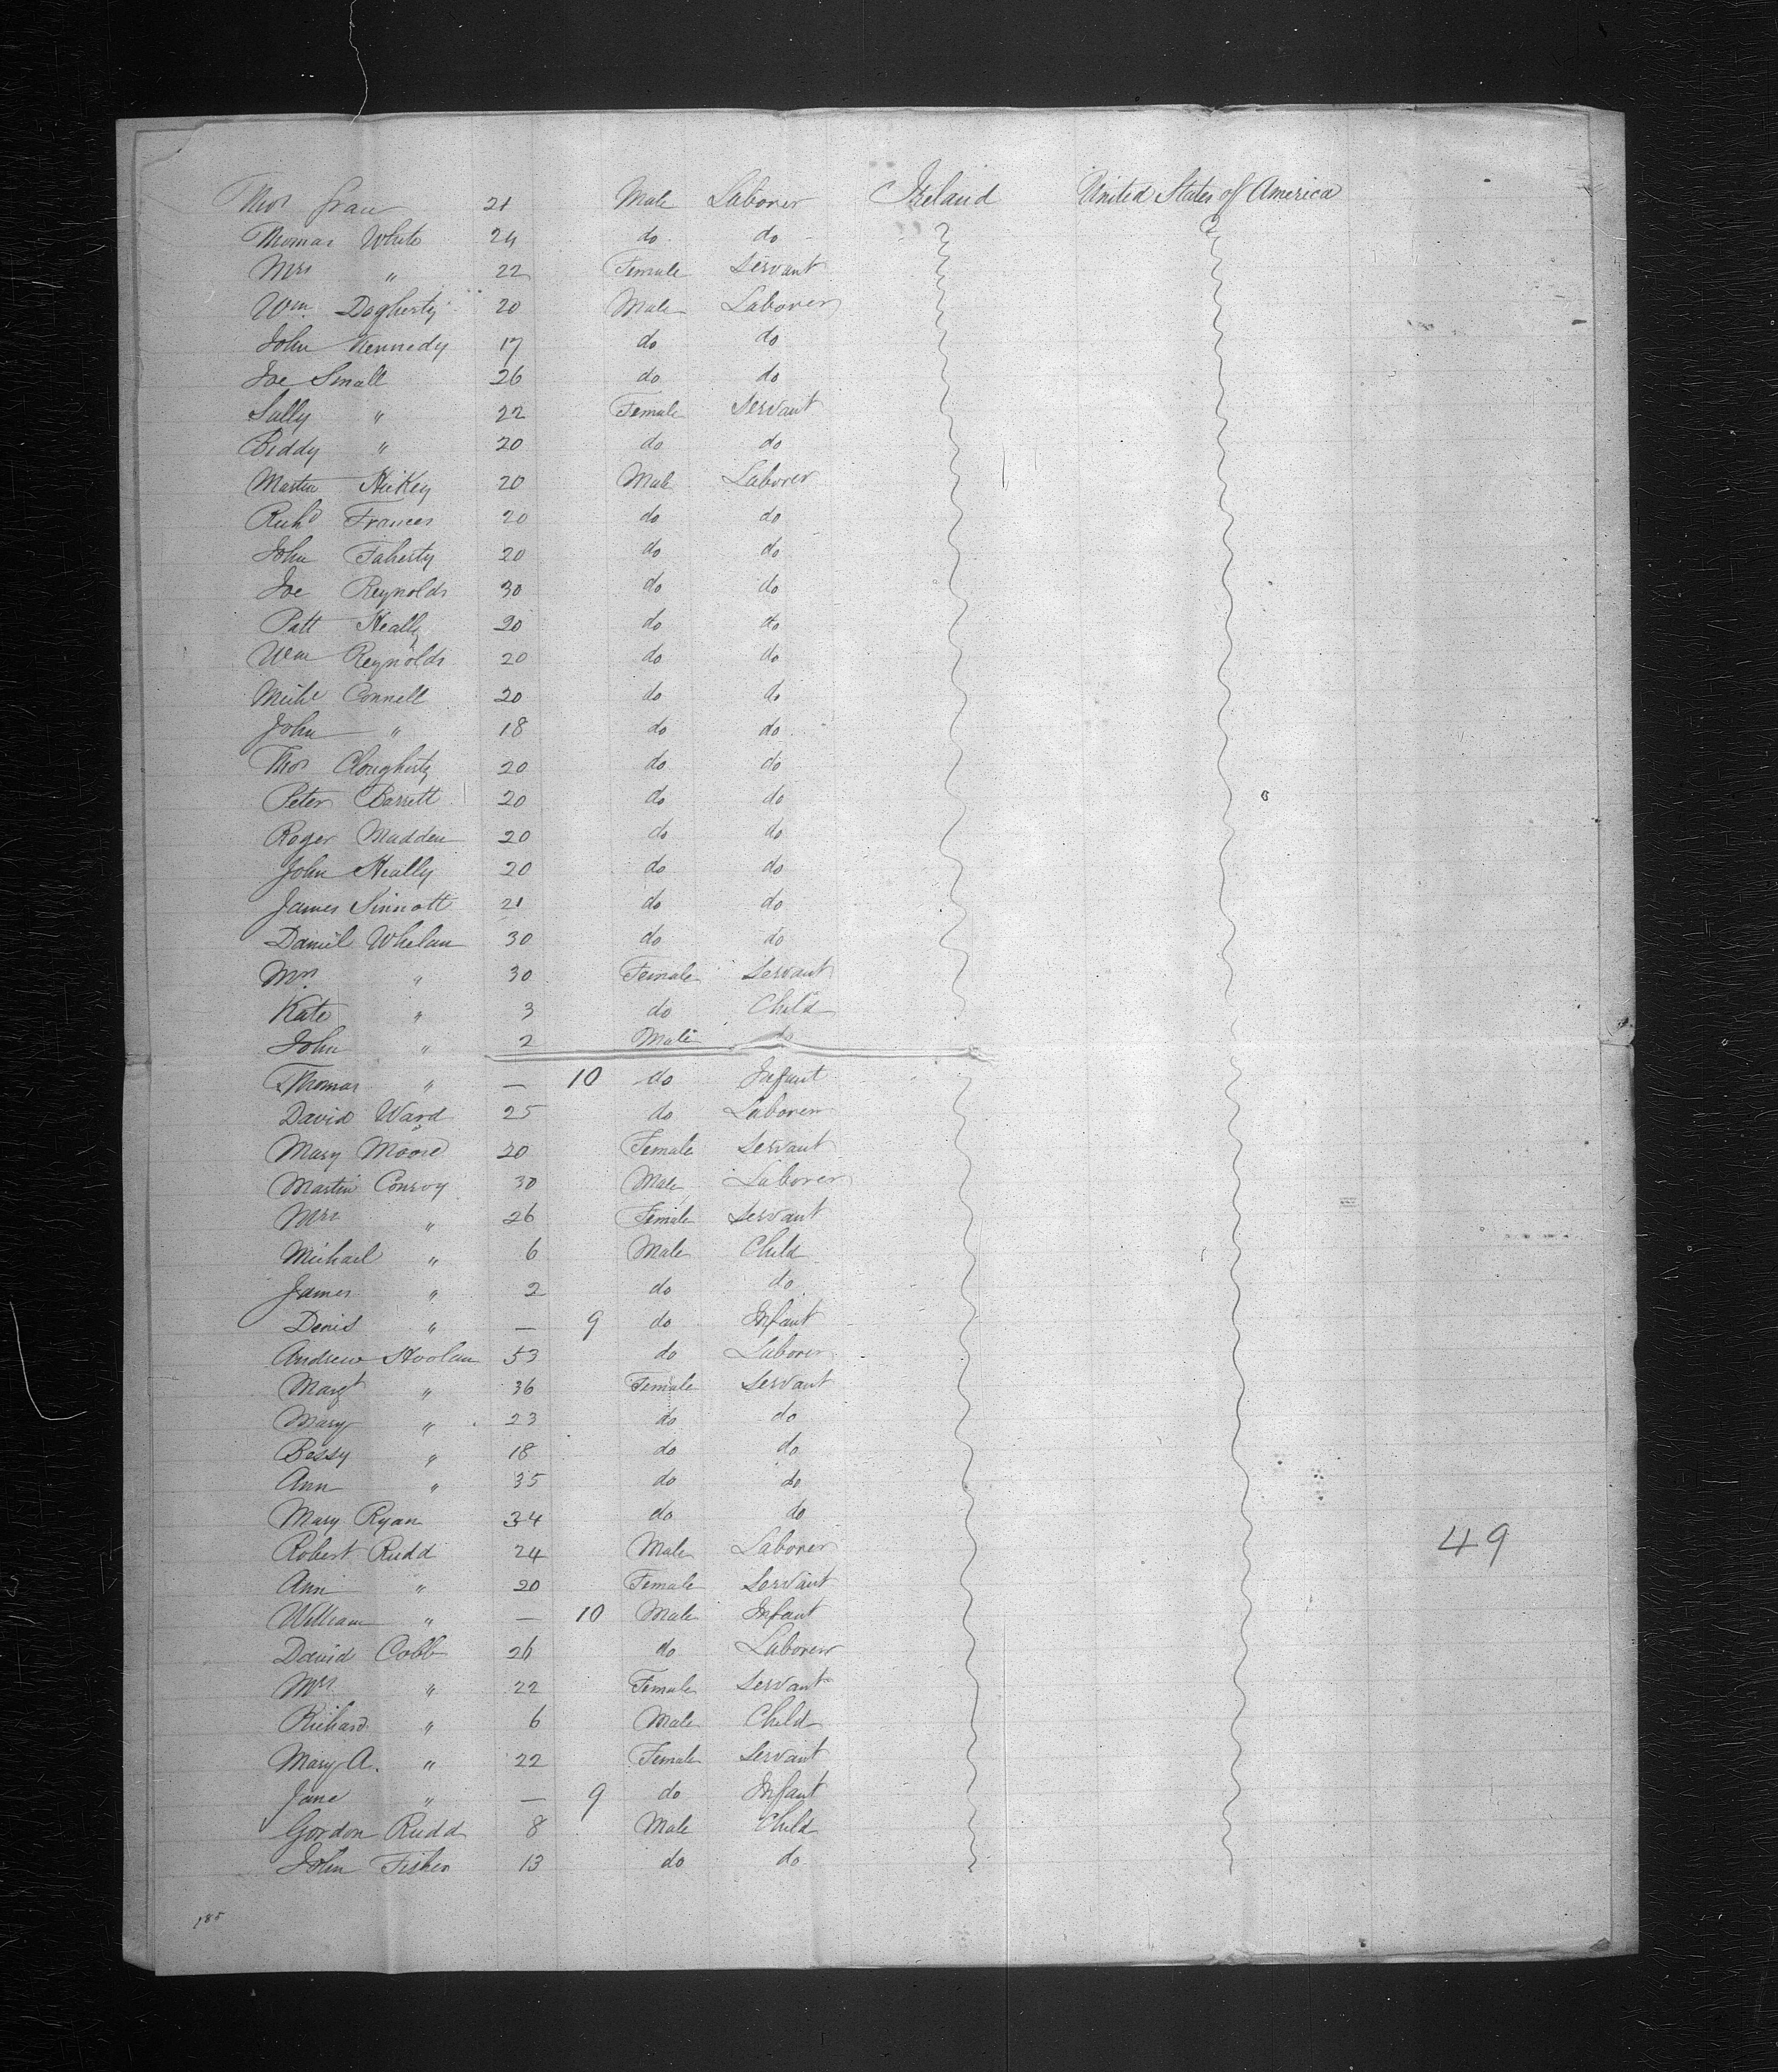 Thos Grau 21 Male Laborer Ireland United States of America
Thomas White 24 do do
Mrs " 22 Female Servant
Wm. Dogherty 20 Male Laborer
John Kennedy 17 do do
Joe Small 26 do do
Sally " 22 Female Servant
Biddy " 20 do do
Martin Hickey 20 Male Laborer
Richd Frances 20 do do
John Faherty 20 do do
Joe Reynolds 30 do do
Patt Heally 20 do do
Wm Reynolds 20 do do
Michl Connell 20 do do
John " 18 do do
Thos Clougherty 20 do do
Peter Barrett 20 do do
Roger Madden 20 do do
John Heally 20 do do
James Sinnott 21 do do
Daniel Whelan 30 do do
Mrs. " 30 Female Servant
Kate " 3 do Child
John " 2 Male do
Thomas " — 10 do Infant
David Ward 25 do Laborer
Mary Moore 20 Female Servant
Martin Conroy 30 Male Laborer
Mrs " 26 Female Servant
Michael " 6 Male Child
James " 2 do do
Denis " — 9 do Infant
Andrew Hoolan 53 do Laborer
Margt " 36 Female Servant
Mary " 23 do do
Bessy " 18 do do
Ann " 35 do do
Mary Ryan 34 do do
Robert Rudd 24 Male Laborer 49
Ann " 20 Female Servant
William " — 10 Male Infant
David Cobb 26 do Laborer
Mrs " 22 Female Servant
Richard " 6 Male Child
Mary A. " 22 Female Servant
Jane " — 9 do Infant
Gordon Rudd 8 Male Child
John Fisher 13 do do
185